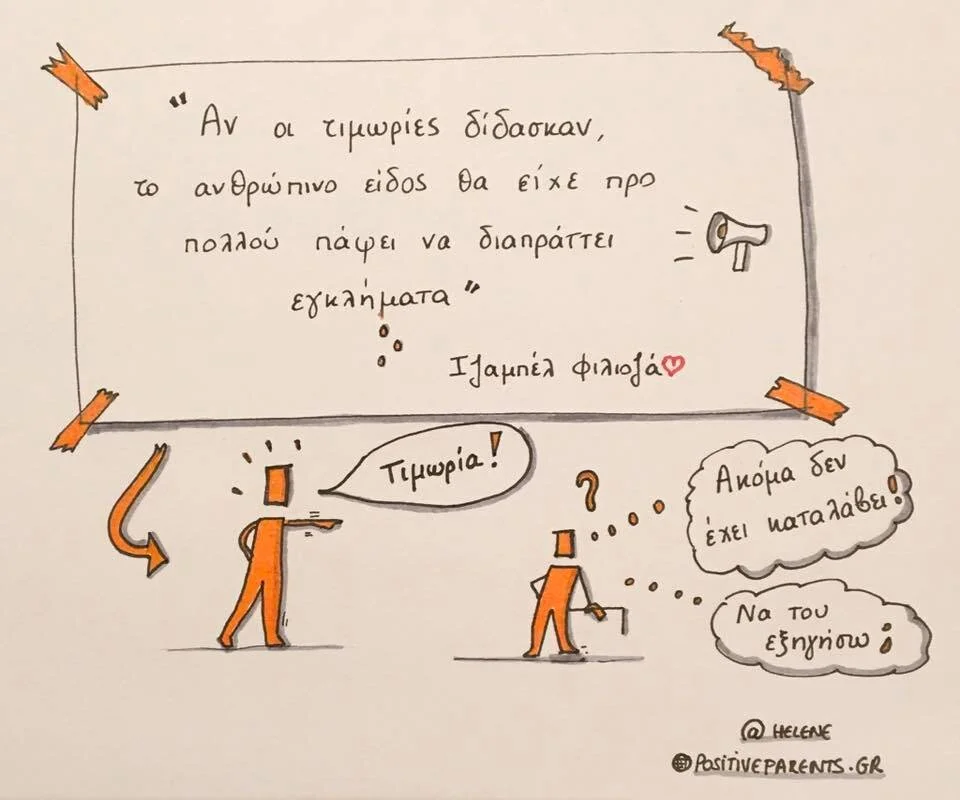 "Αν οι τιμωρίες δίδασκαν,
το ανθρώπινο είδος θα είχε προ
πολλού πάψει να διαπράττει
εγκλήματα"
Ιζαμπέλ Φιλιοζά
Τιμωρία!
?
Ακόμα δεν
έχει καταλάβει!
Να του
εξηγήσω ;
@ HELENE
POSITIVEPARENTS.GR